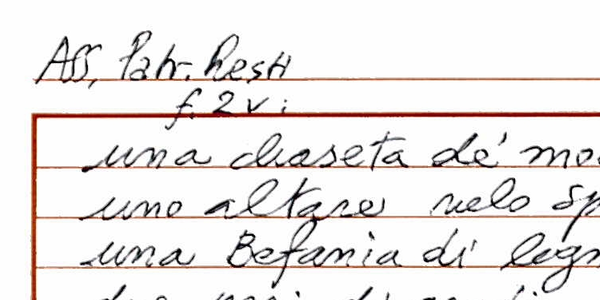 Aff. Patr. Resti
f. 2 v:
una chaseta de' mo
uno altare nelo sp
una Befania di legn